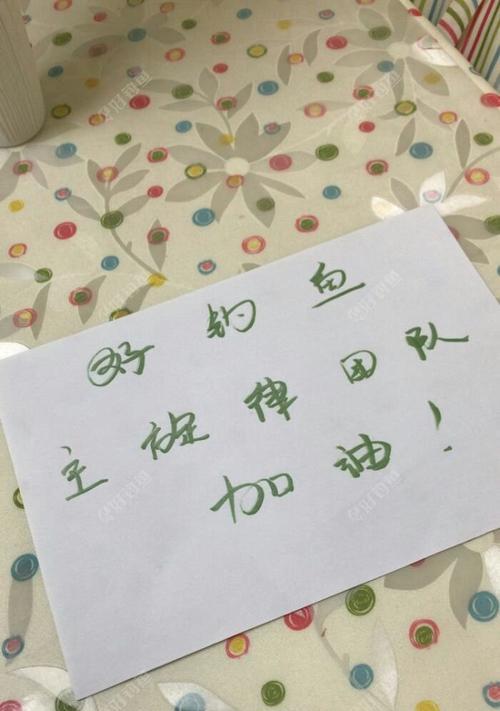 好钓鱼
主旋律团队
加油！